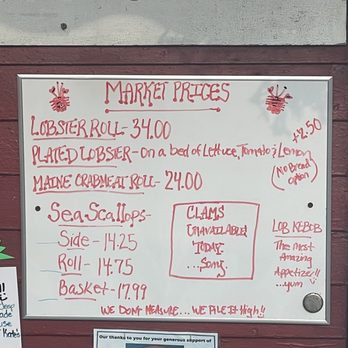 MARKET PRICES
LOBSTER ROLL - 34.00
PLATED LOBSTER - on a bed of Lettuce, Tomato & Lemon
+2.50
(No Bread option)
MAINE CRABMEAT ROLL - 24.00
Sea Scallops -
Side - 14.25
Roll - 14.75
Basket - 17.99
CLAMS
UNAVAILABLE
TODAY.
...Sorry.
LOB KEBOB
The most
Amazing
Appetizer!!
...yum
WE DON'T MEASURE... WE PILE IT High!!
Thanks for your generous support of